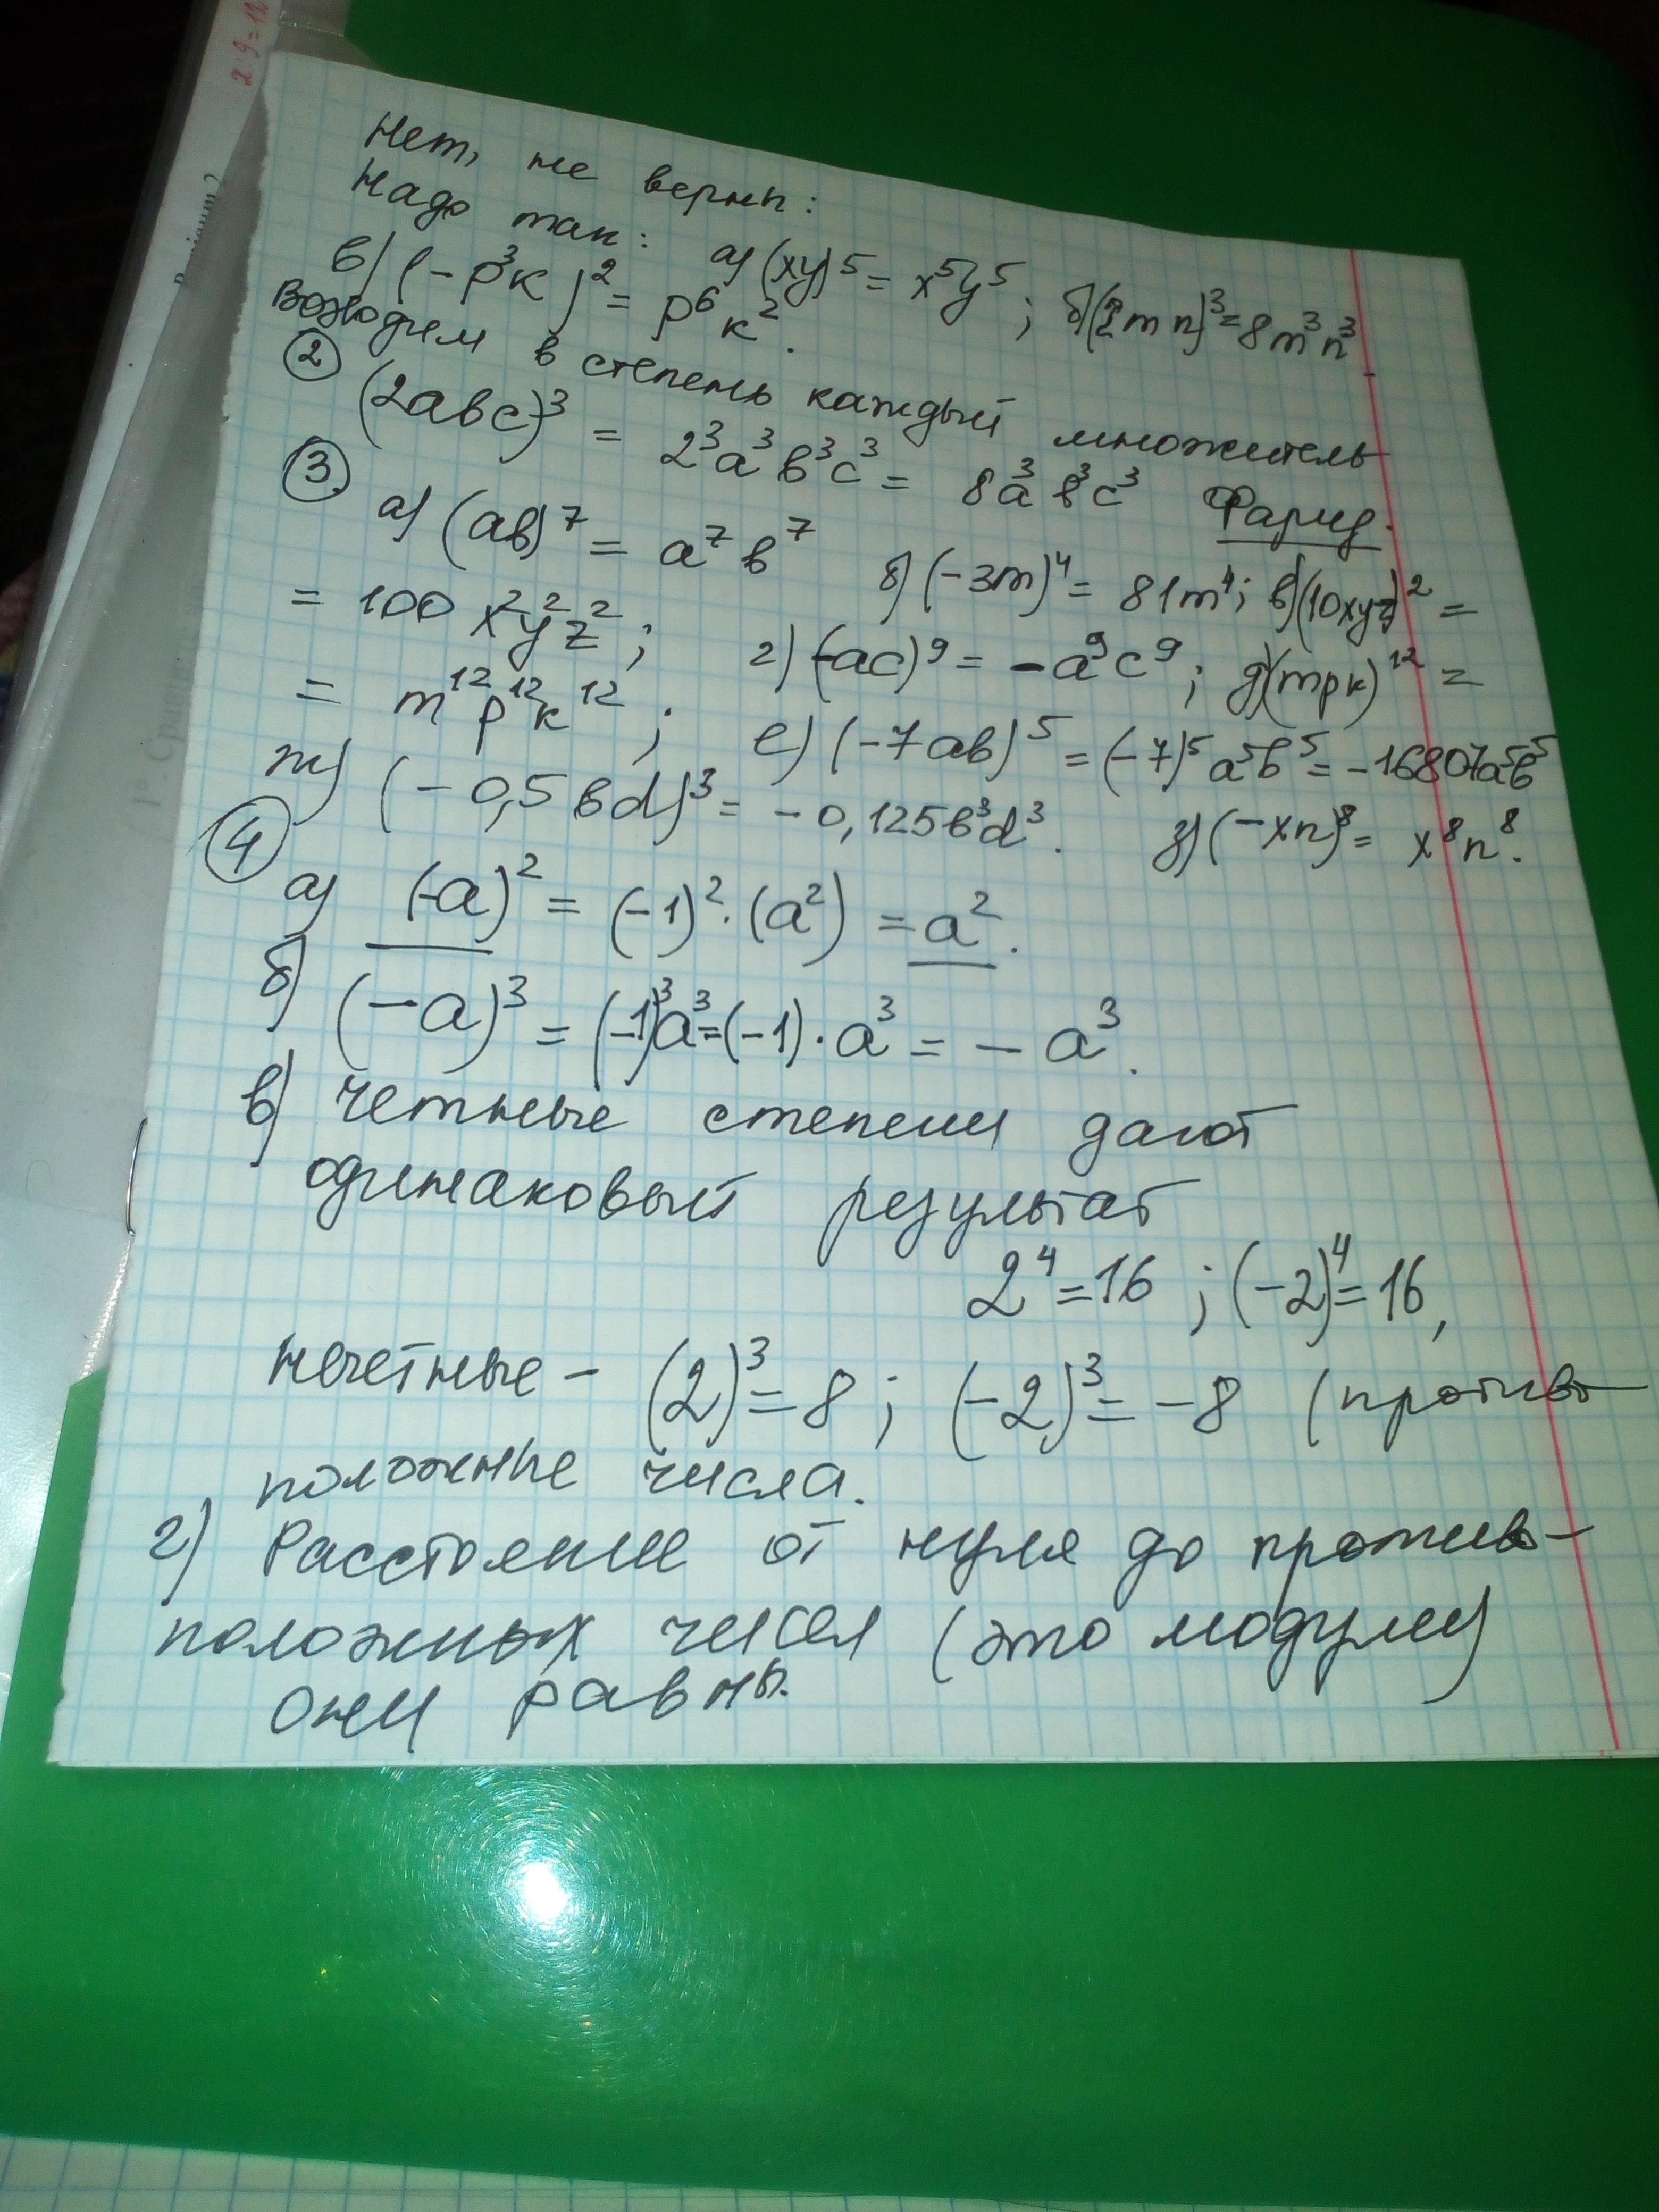 2 9=12
Нет, не верны:
Надо так: а) (xy)⁵ = x⁵y⁵; б) (2mn)³=8m³n³
в) (-p³к)² = p⁶к².
Возводим в степень каждый множитель
② (2авс)³ = 2³а³в³с³ = 8а³в³с³ Фарид.
③ а) (ав)⁷ = а⁷в⁷ б) (-3m)⁴ = 81m⁴; в) (10xyz)² =
= 100x²y²z²; г) (-ac)⁹ = -a⁹c⁹; д) (mpк)¹² =
= m¹²p¹²к¹²; е) (-7ав)⁵ = (-7)⁵а⁵в⁵ = -16807а⁵в⁵
ж) (-0,5вd)³ = -0,125в³d³. з) (-xn)⁸ = x⁸n⁸.
④
а) (-а)² = (-1)²·(а²) = а².
б) (-а)³ = (-1)³а³=(-1)·а³ = -а³.
в) четные степени дают
одинаковый результат
2⁴=16; (-2)⁴=16,
нечетные - (2)³=8; (-2)³= -8 (противо
положные числа.
г) Расстояния от нуля до противо-
положных чисел (это модули)
они равны.